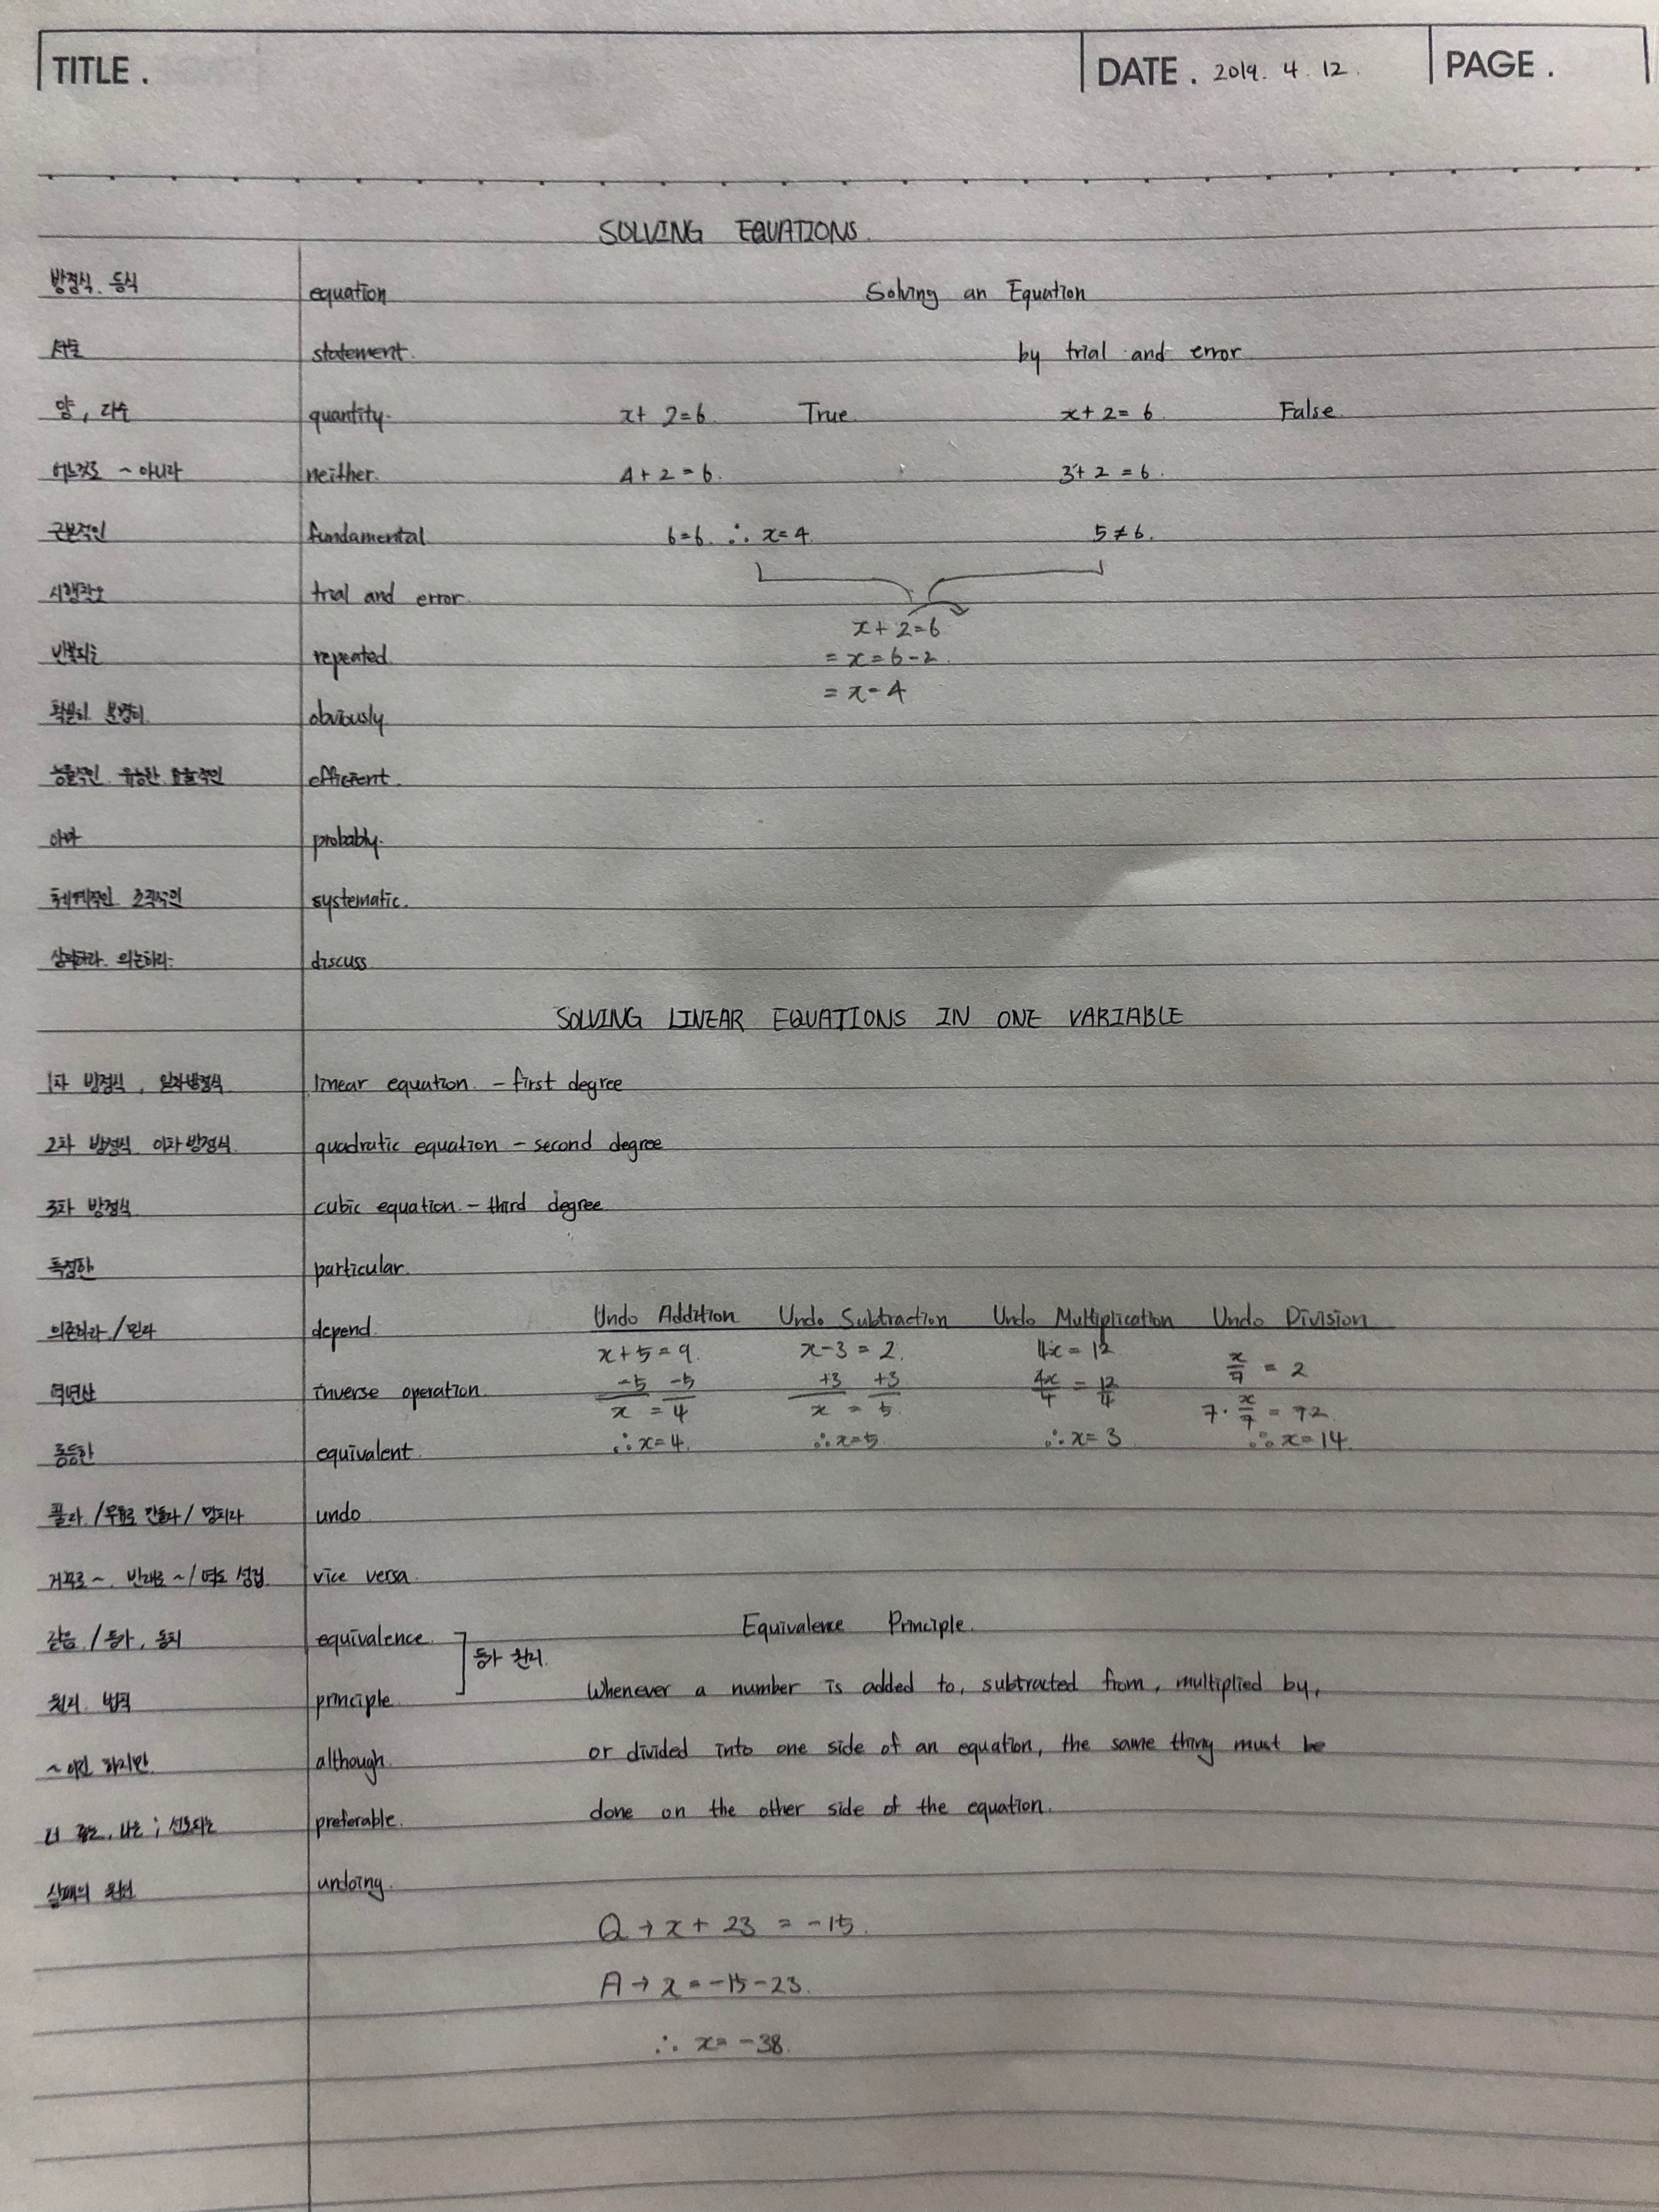 TITLE. DATE. 2019. 4. 12. PAGE.
SOLVING EQUATIONS.
방정식. 등식 equation Solving an Equation
서술 statement. by trial and error
양, 다수 quantity. x+ 2=6. True. x+2= 6. False.
어느것도 ~ 아니라 neither. 4+2=6. 3+2=6.
근본적인 fundamental 6=6. ∴ x=4. 5≠6.
시행착오 trial and error.
x+2=6
반복되는 repeated. = x=6-2.
= x=4
확실히 분명히. obviously
능률적인. 유능한. 효율적인 efficient.
아마 probably.
체계적인. 조직적인 systematic.
상의하다. 의논하다. discuss.
SOLVING LINEAR EQUATIONS IN ONE VARIABLE
1차 방정식, 일차방정식 linear equation. - first degree
2차 방정식. 이차방정식. quadratic equation - second degree
3차 방정식. cubic equation. - third degree
특정한 particular.
Undo Addition Undo Subtraction Undo Multiplication Undo Division
의존하다/믿다 depend.
x+5=9. x-3=2. 4x=12 x/7 = 2
역연산 inverse operation. -5 -5 +3 +3 4x/4 = 12/4
x = 4 x = 5. 7·x/7 = 7·2.
∴x=4. ∴x=5. ∴x=3 ∴x=14.
동등한 equivalent.
풀다/무효로 만들다/망치다 undo
거꾸로~. 반대로~/역도 성립 vice versa.
같음/등가, 동치 equivalence. Equivalence Principle.
등가 원리.
원리. 법칙 principle. Whenever a number is added to, subtracted from, multiplied by,
~이긴 하지만. although. or divided into one side of an equation, the same thing must be
더 좋은, 나은; 선호되는 preferable. done on the other side of the equation.
실패의 원인 undoing.
Q → x + 23 = -15.
A → x = -15-23.
∴ x= -38.